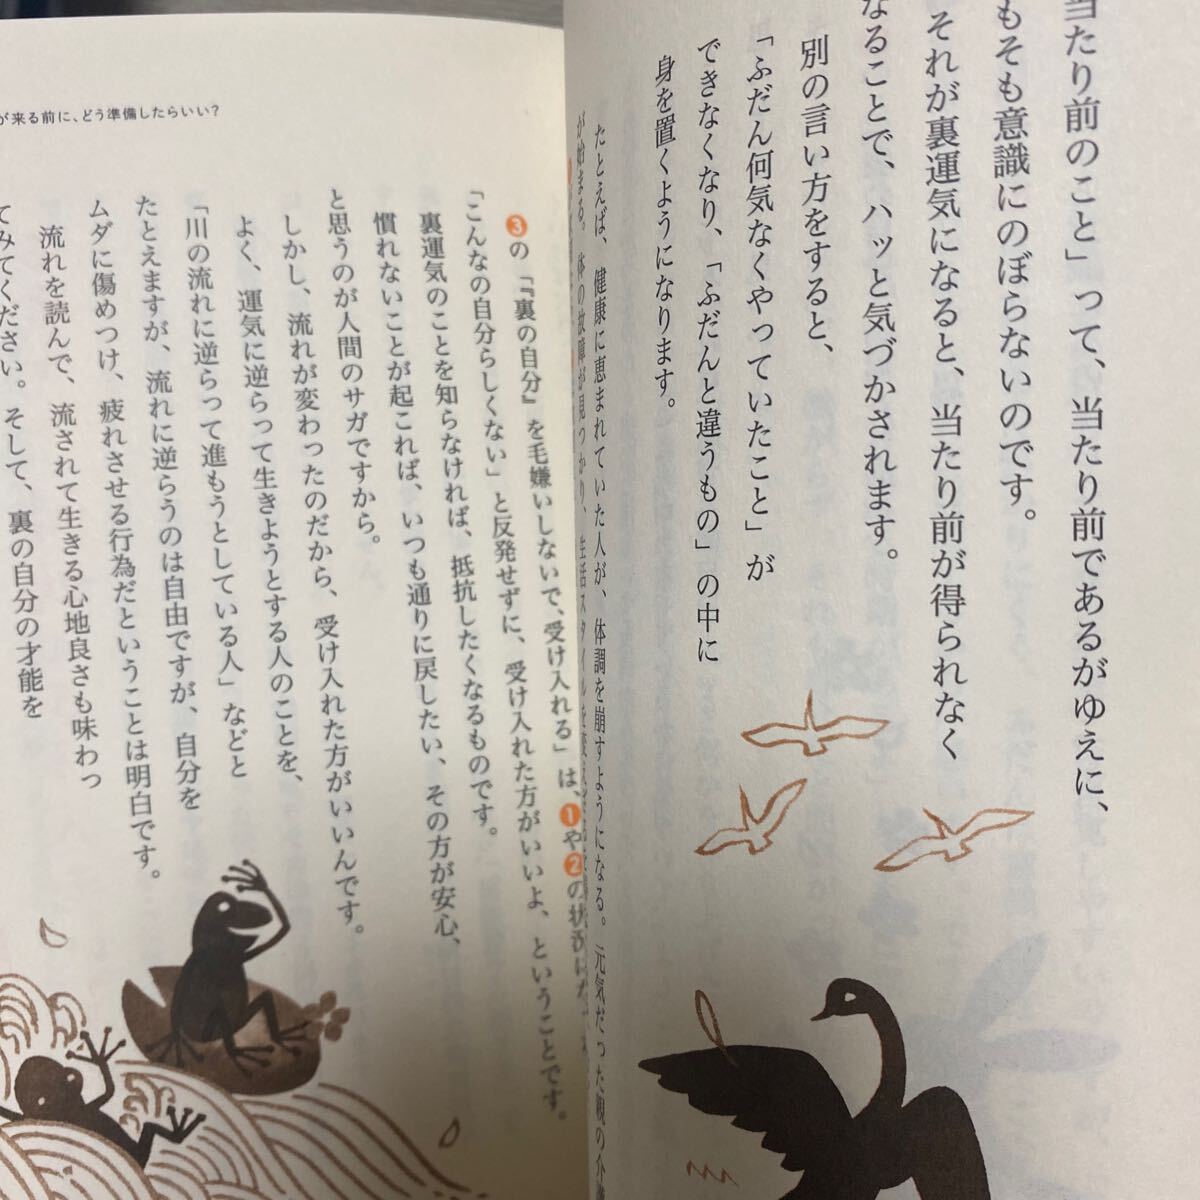 当たり前のこと」って、当たり前であるがゆえに、
もそも意識にのぼらないのです。
それが裏運気になると、当たり前が得られなく
なることで、ハッと気づかされます。
別の言い方をすると、
「ふだん何気なくやっていたこと」が
できなくなり、「ふだんと違うもの」の中に
身を置くようになります。
たとえば、健康に恵まれていた人が、体調を崩すようになる。元気だった親の介護
が始まる。体の故障が見つかり、生活スタイルを変え
が来る前に、どう準備したらいい?
❸の「『裏の自分』を毛嫌いしないで、受け入れる」は、❶や❷の状況に
「こんなの自分らしくない」と反発せずに、受け入れた方がいいよ、ということです。
裏運気のことを知らなければ、抵抗したくなるものです。
慣れないことが起これば、いつも通りに戻したい、その方が安心、
と思うのが人間のサガですから。
しかし、流れが変わったのだから、受け入れた方がいいんです。
よく、運気に逆らって生きようとする人のことを、
「川の流れに逆らって進もうとしている人」などと
たとえますが、流れに逆らうのは自由ですが、自分を
ムダに傷めつけ、疲れさせる行為だということは明白です。
流れを読んで、流されて生きる心地良さも味わっ
てみてください。そして、裏の自分の才能を